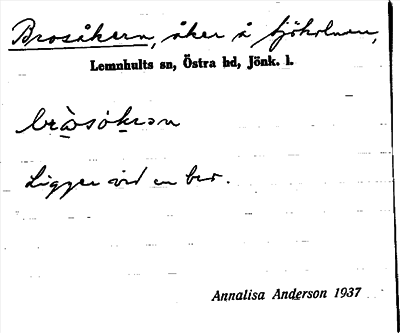 Brosåkern, åker å Sjöholmen,
Lemnhults sn, Östra hd, Jönk. l.
bròsókrən
Ligger vid en bro.
Annalisa Anderson 1937